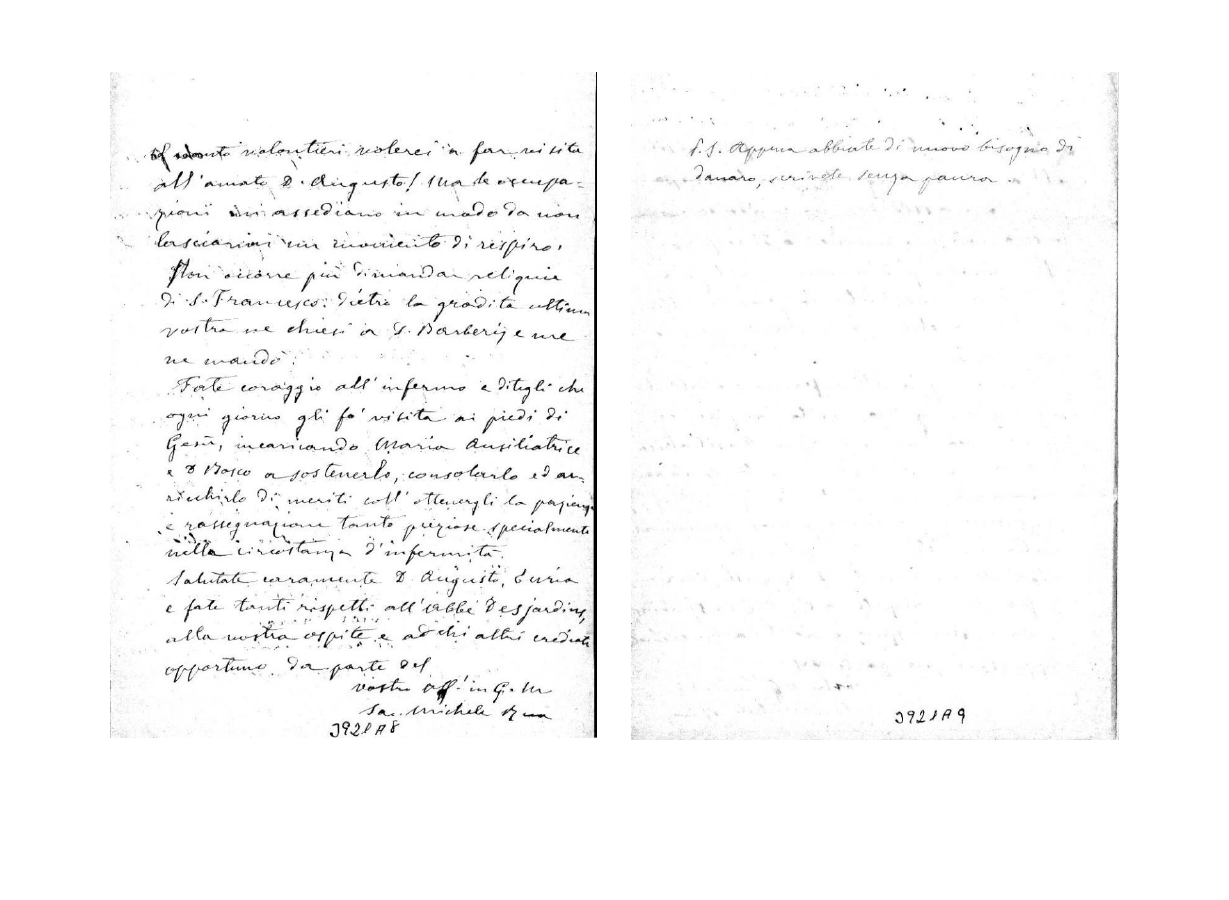 quanto volontieri volerei a far visita
all'amato D. Augusto! Ma le occupa-
zioni mi assediano in modo da non
lasciarmi un momento di respiro.
Non occorre più dimandar reliquie
di S. Francesco: dietro la gradita ultima
vostra ne chiesi a D. Barberis e me
ne mandò.
Fate coraggio all'infermo e ditegli che
ogni giorno gli fo' visita ai piedi di
Gesù, incaricando Maria Ausiliatrice
e D Bosco a sostenerlo, consolarlo ed ar-
ricchirlo di meriti coll'ottenergli la pazienza
e rassegnazione tanto preziose specialmente
nella circostanza d'infermità.
Salutate caramente D. Augusto,
e fate tanti rispetti all'Abbé Desjardins,
alla vostra ospite e ad chi altri crediate
opportuno da parte del
vostro aff.' in G. M
Sac. Michele Rua
3921A8
P.S. Appena abbiate di nuovo bisogno di
danaro, scrivete senza paura.
3921A9